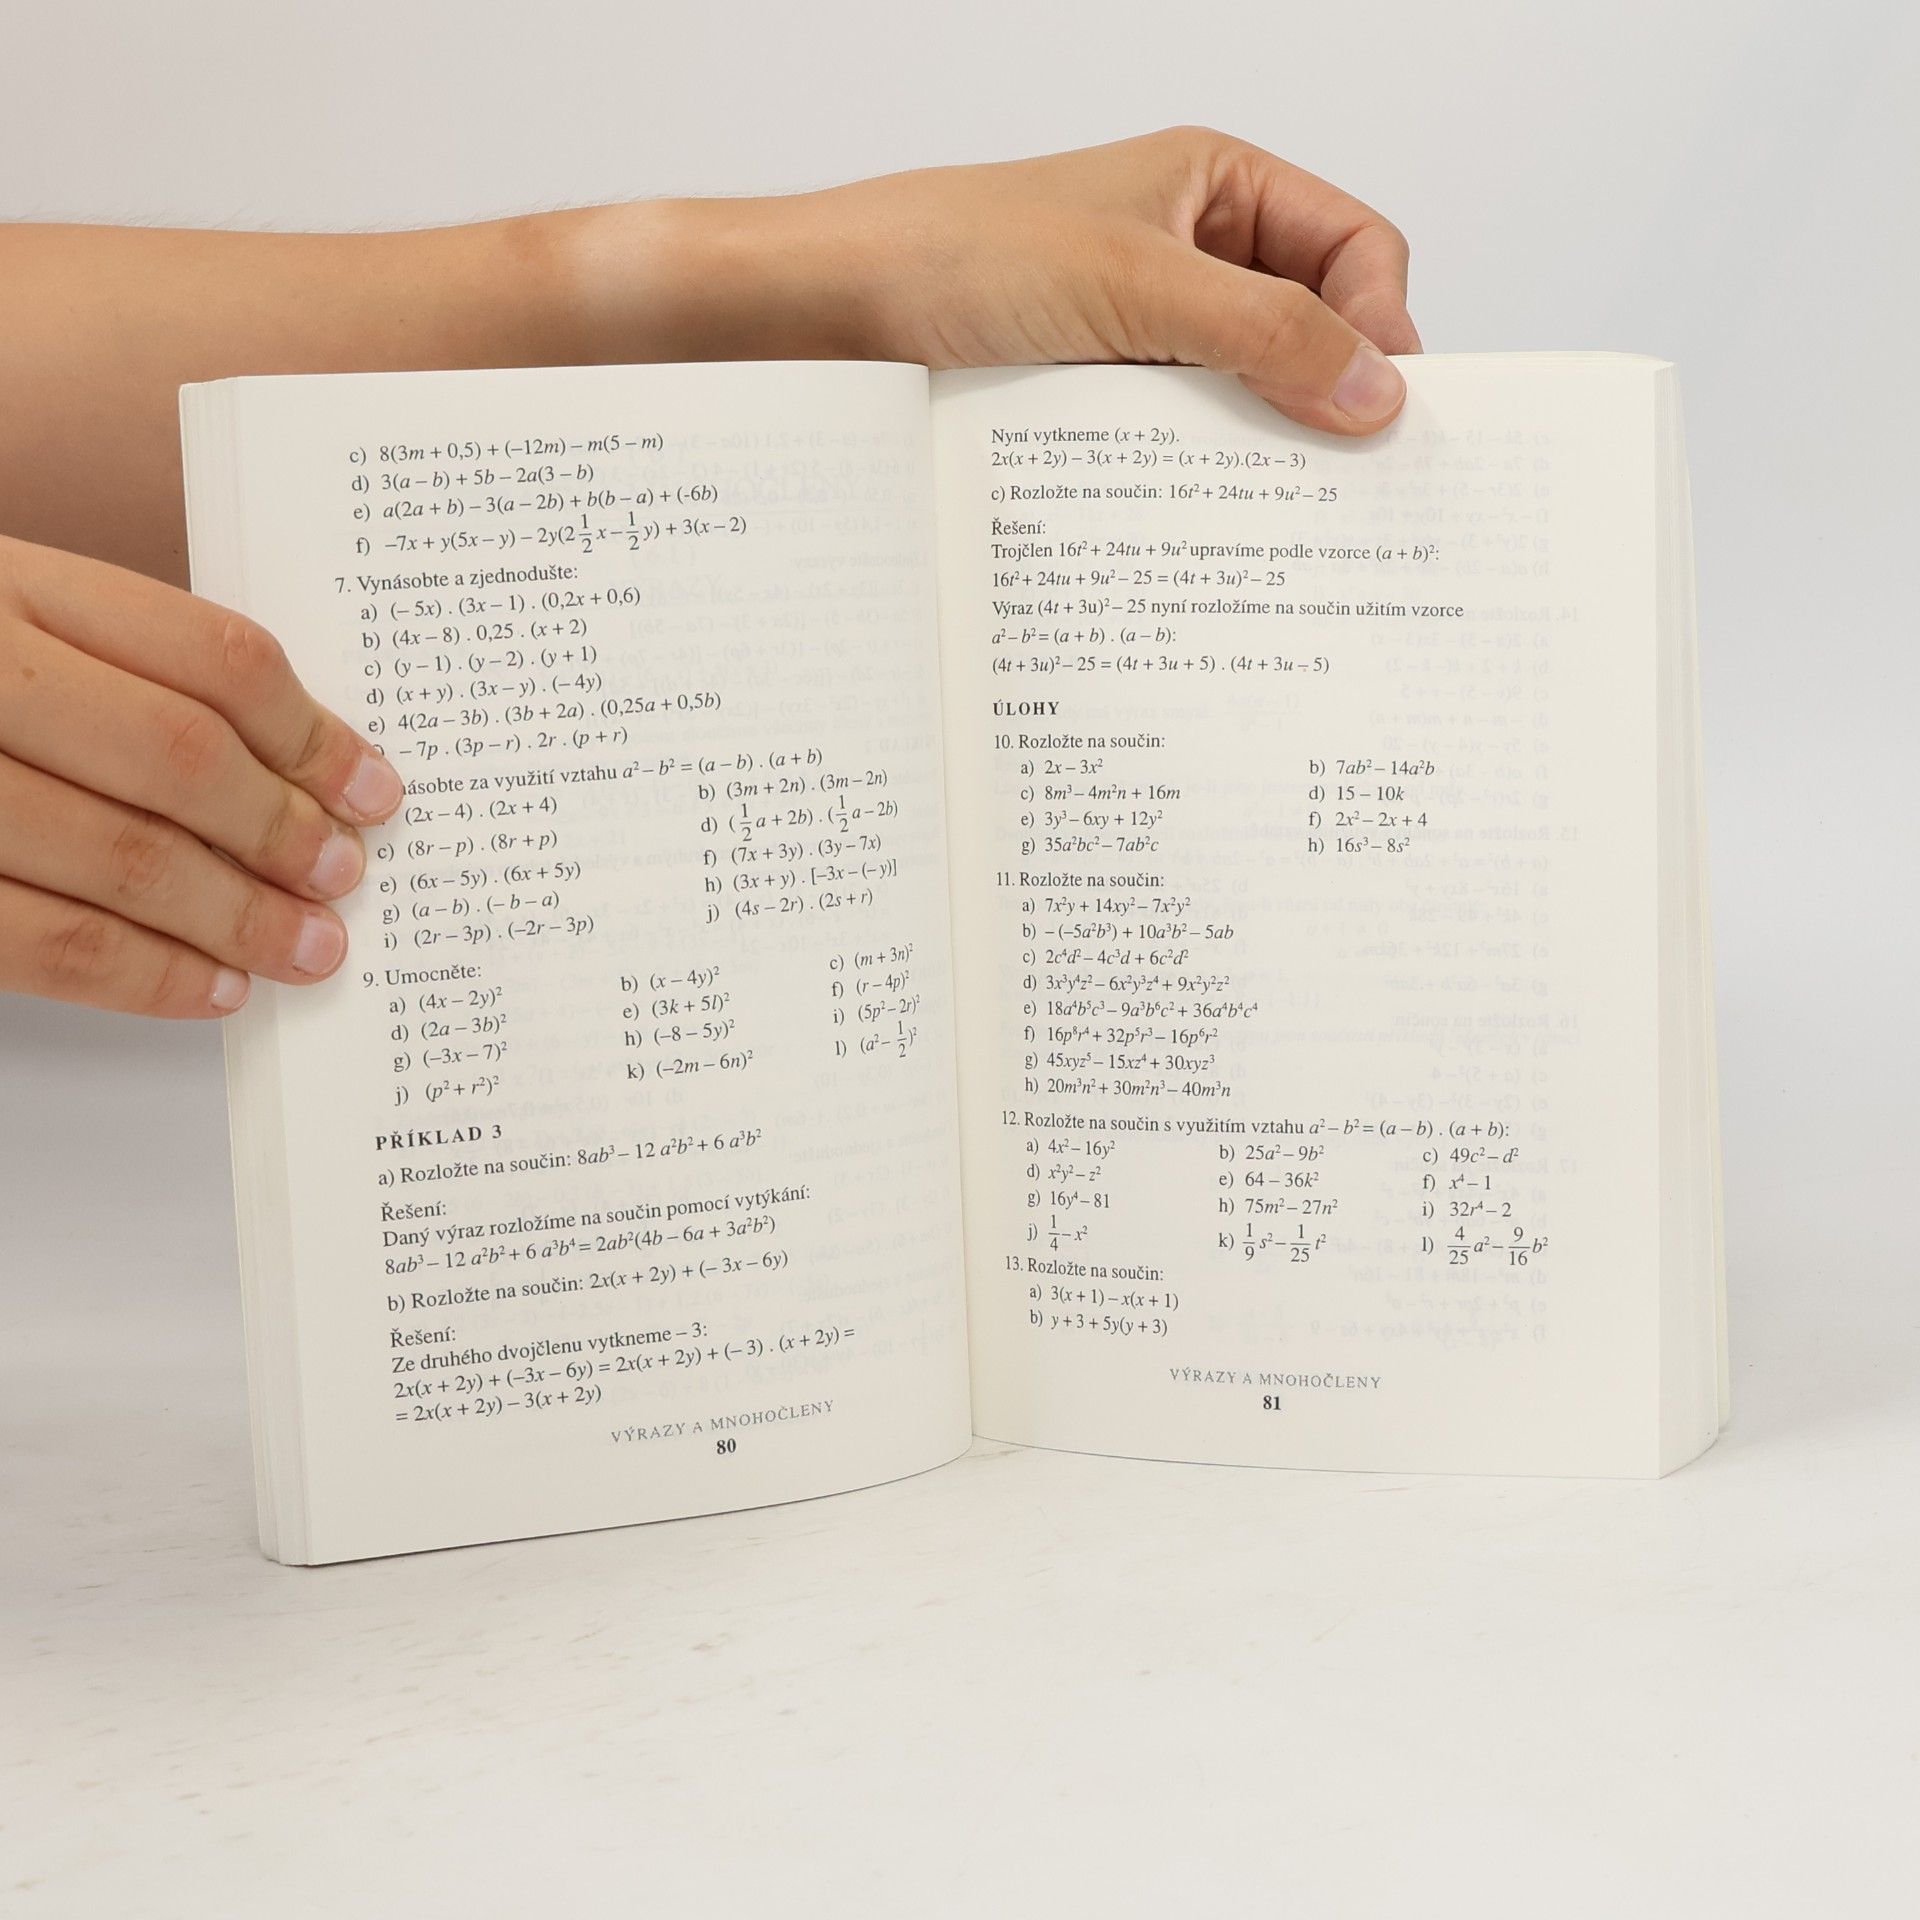 c) 8(3m + 0,5) + (–12m) – m(5 – m)
d) 3(a – b) + 5b – 2a(3 – b)
e) a(2a + b) – 3(a – 2b) + b(b – a) + (-6b)
f) –7x + y(5x – y) – 2y(2 1/2 x – 1/2 y) + 3(x – 2)
7. Vynásobte a zjednodušte:
a) (– 5x) . (3x – 1) . (0,2x + 0,6)
b) (4x – 8) . 0,25 . (x + 2)
c) (y – 1) . (y – 2) . (y + 1)
d) (x + y) . (3x – y) . (– 4y)
e) 4(2a – 3b) . (3b + 2a) . (0,25a + 0,5b)
– 7p . (3p – r) . 2r . (p + r)
za využití vztahu a² – b² = (a – b) . (a + b)
(2x – 4) . (2x + 4) b) (3m + 2n) . (3m – 2n)
c) (8r – p) . (8r + p) d) (1/2 a + 2b) . (1/2 a – 2b)
e) (6x – 5y) . (6x + 5y) f) (7x + 3y) . (3y – 7x)
g) (a – b) . (– b – a) h) (3x + y) . [–3x – (– y)]
i) (2r – 3p) . (–2r – 3p) j) (4s – 2r) . (2s + r)
9. Umocněte:
a) (4x – 2y)² b) (x – 4y)² c) (m + 3n)²
d) (2a – 3b)² e) (3k + 5l)² f) (r – 4p)²
g) (–3x – 7)² h) (–8 – 5y)² i) (5p² – 2r)²
j) (p² + r²)² k) (–2m – 6n)² l) (a² – 1/2)²
PŘÍKLAD 3
a) Rozložte na součin: 8ab³ – 12 a²b² + 6 a³b²
Řešení:
Daný výraz rozložíme na součin pomocí vytýkání:
8ab³ – 12 a²b² + 6 a³b⁴ = 2ab²(4b – 6a + 3a²b²)
b) Rozložte na součin: 2x(x + 2y) + (– 3x – 6y)
Řešení:
Ze druhého dvojčlenu vytkneme – 3:
2x(x + 2y) + (–3x – 6y) = 2x(x + 2y) + (– 3) . (x + 2y) =
= 2x(x + 2y) – 3(x + 2y)
VÝRAZY A MNOHOČLENY
80
Nyní vytkneme (x + 2y).
2x(x + 2y) – 3(x + 2y) = (x + 2y).(2x – 3)
c) Rozložte na součin: 16t² + 24tu + 9u² – 25
Řešení:
Trojčlen 16t² + 24tu + 9u² upravíme podle vzorce (a + b)²:
16t² + 24tu + 9u² – 25 = (4t + 3u)² – 25
Výraz (4t + 3u)² – 25 nyní rozložíme na součin užitím vzorce
a² – b² = (a + b) . (a – b):
(4t + 3u)² – 25 = (4t + 3u + 5) . (4t + 3u – 5)
ÚLOHY
10. Rozložte na součin:
a) 2x – 3x² b) 7ab² – 14a²b
c) 8m³ – 4m²n + 16m d) 15 – 10k
e) 3y³ – 6xy + 12y² f) 2x² – 2x + 4
g) 35a²bc² – 7ab²c h) 16s³ – 8s²
11. Rozložte na součin:
a) 7x²y + 14xy² – 7x²y²
b) – (–5a²b³) + 10a³b² – 5ab
c) 2c⁴d² – 4c³d + 6c²d²
d) 3x³y⁴z² – 6x²y³z⁴ + 9x²y²z²
e) 18a⁴b⁵c³ – 9a³b⁶c² + 36a⁴b⁴c⁴
f) 16p⁸r⁴ + 32p⁵r³ – 16p⁶r²
g) 45xyz⁵ – 15xz⁴ + 30xyz³
h) 20m³n² + 30m²n³ – 40m³n
12. Rozložte na součin s využitím vztahu a² – b² = (a – b) . (a + b):
a) 4x² – 16y² b) 25a² – 9b² c) 49c² – d²
d) x²y² – z² e) 64 – 36k² f) x⁴ – 1
g) 16y⁴ – 81 h) 75m² – 27n² i) 32r⁴ – 2
j) 1/4 – x² k) 1/9 s² – 1/25 t² l) 4/25 a² – 9/16 b²
13. Rozložte na součin:
a) 3(x + 1) – x(x + 1)
b) y + 3 + 5y(y + 3)
VÝRAZY A MNOHOČLENY
81